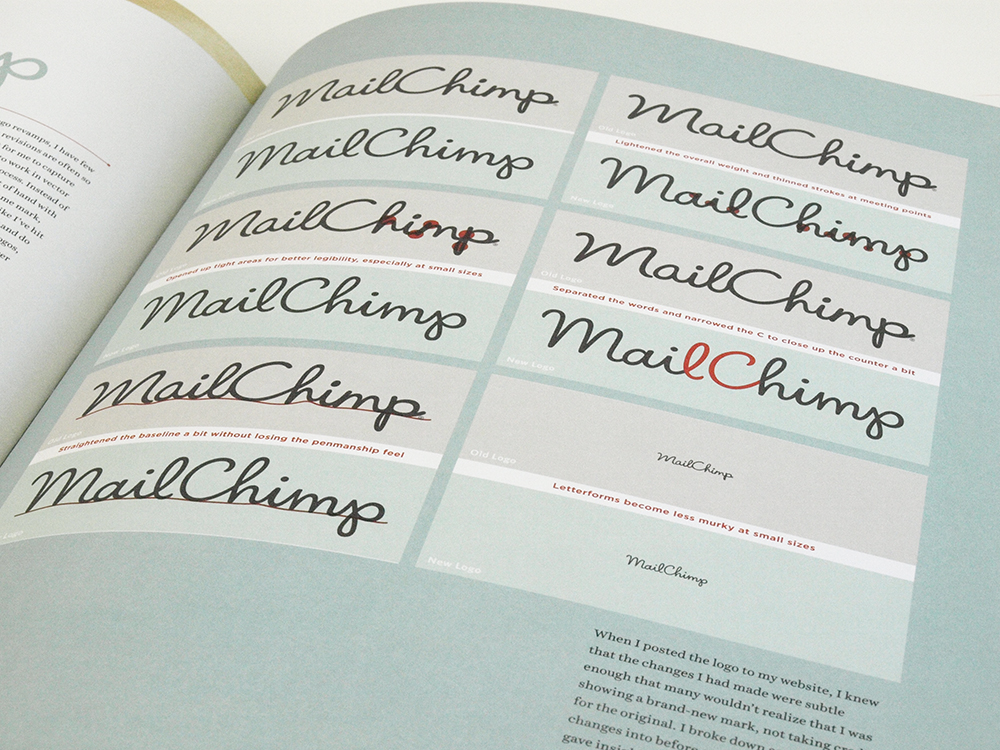 go revamps, I have few
revisions are often so
for me to capture
to work in vector
ocess. Instead of
of hand with
me mark,
ike I've hit
and do
ogos,
er
MailChimp
MailChimp
MailChimp
Opened up tight areas for better legibility, especially at small sizes
MailChimp
New Logo
MailChimp
Old Logo
Straightened the baseline a bit without losing the penmanship feel
MailChimp
Logo
MailChimp
Old Logo
Lightened the overall weight and thinned strokes at meeting points
MailChimp
New Logo
MailChimp
Old Logo
Separated the words and narrowed the C to close up the counter a bit
MailChimp
New Logo
MailChimp
Old Logo
Letterforms become less murky at small sizes
MailChimp
New Logo
When I posted the logo to my website, I knew
that the changes I had made were subtle
enough that many wouldn't realize that I was
showing a brand-new mark, not taking
for the original. I broke down
changes into before
gave